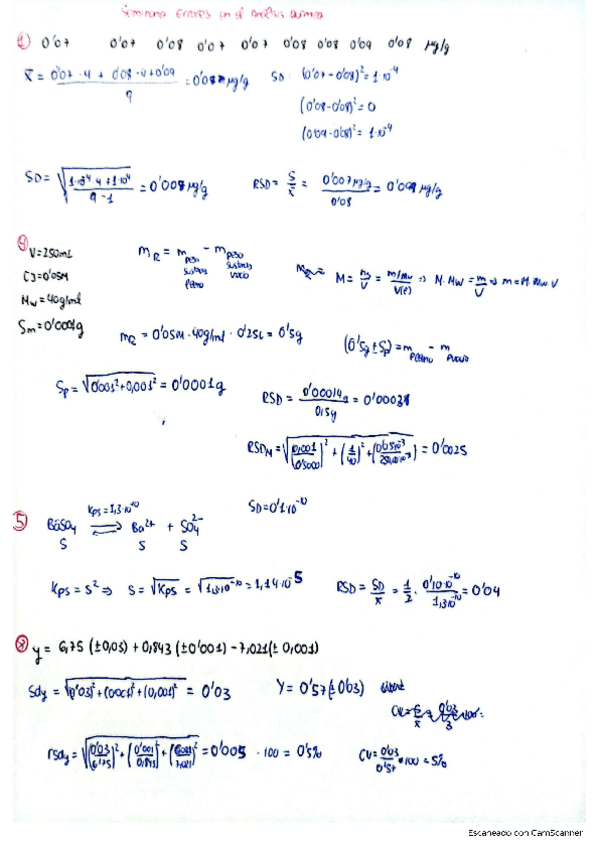 Seminario Errores en el Análisis Químico
1) 0'07 0'07 0'08 0'07 0'07 0'08 0'08 0'09 0'08 µg/g
x̄ = (0'07·4 + 0'08·4 + 0'09)/9 = 0'08 µg/g SD = (0'07-0'08)² = 1·10⁻⁴
(0'08-0'08)² = 0
(0'09-0'08)² = 1·10⁻⁴
SD = √((1·10⁻⁴·4 + 1·10⁻⁴)/(9-1)) = 0'008 µg/g RSD = S/x̄ = 0'007 µg/g / 0'08 = 0'09 µg/g
4) V=250mL
CJ=0'05M
Mw=40g/mol
Sm=0'0001g
mR = m peso sustancia lleno - m peso sustancia vacío
M = n/V = (m/Mw)/V(l) ⇒ M·Mw = m/V ⇒ m = M·Mw·V
mR = 0'05M·40g/mol·0'25L = 0'5g
(0'5g ± Sp) = m plleno - m pvacío
Sp = √(0'001² + 0,001²) = 0'0001g
RSD = 0'00014g / 0,5g = 0'00028
RSDM = √((0,001/0'5000)² + (1/40)² + (0'05·10⁻³/250,00·10⁻³)²) = 0'0025
5) BaSO₄ Kps=1,3·10⁻¹⁰ ⇌ Ba²⁺ + SO₄²⁻ SD=0'1·10⁻¹⁰
S S S
Kps = s² ⇒ s = √Kps = √1,3·10⁻¹⁰ = 1,14·10⁻⁵ RSD = SD/x̄ = 1/2 · 0'10·10⁻¹⁰/1,3·10⁻¹⁰ = 0'04
y = 6,75 (±0,03) + 0,843 (±0'001) - 7,021(± 0,001)
Sdy = √(0'03)² + (0'001)² + (0,001)² = 0'03 Y = 0'57(±0'03)
rsdy = √((0'03/6'75)² + (0'001/0,843)² + (0,001/7,021)²) = 0'005 · 100 = 0'5% CV = 0'03/0'57 · 100 = 5%
Escaneado con CamScanner